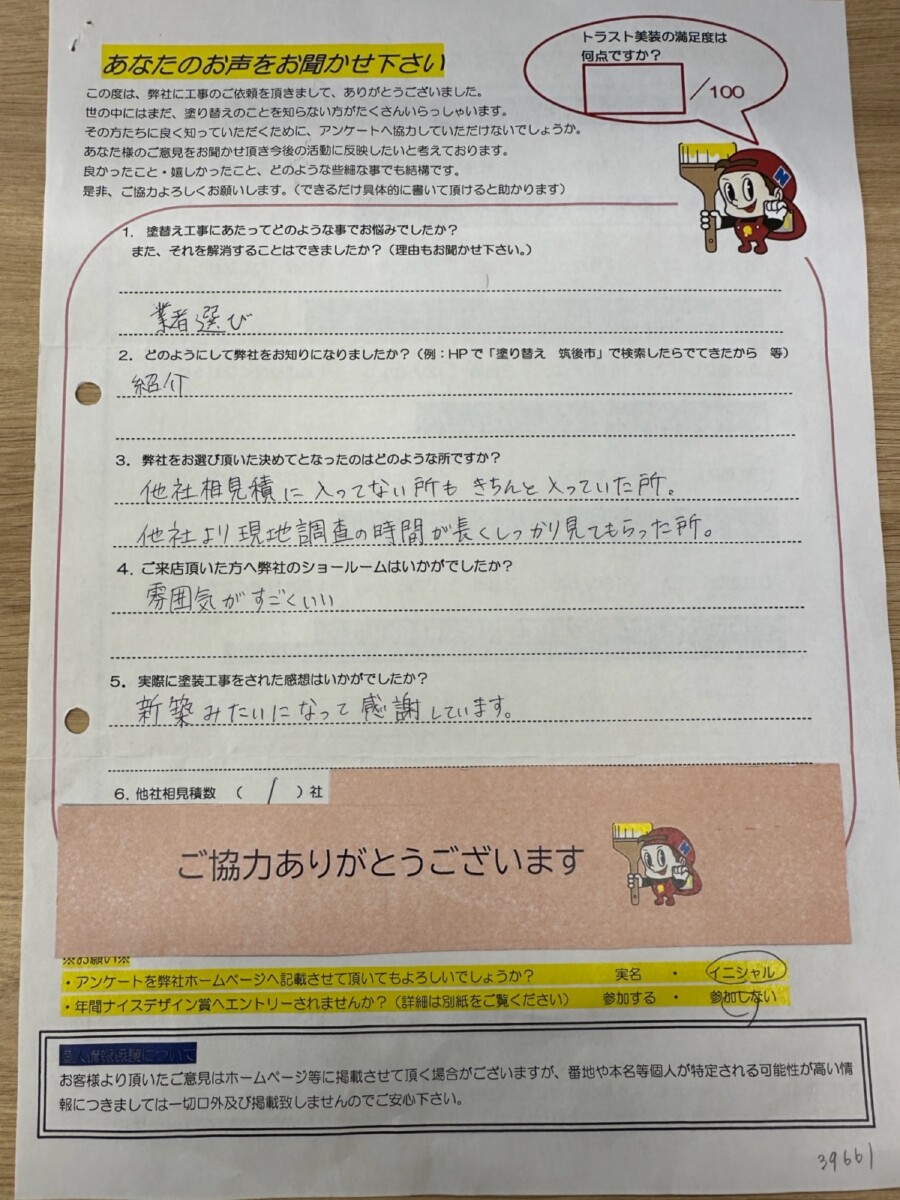 あなたのお声をお聞かせ下さい
トラスト美装の満足度は
何点ですか？
／100
この度は、弊社に工事のご依頼を頂きまして、ありがとうございました。
世の中にはまだ、塗り替えのことを知らない方がたくさんいらっしゃいます。
その方たちに良く知っていただくために、アンケートへ協力していただけないでしょうか。
あなた様のご意見をお聞かせ頂き今後の活動に反映したいと考えております。
良かったこと・嬉しかったこと、どのような些細な事でも結構です。
是非、ご協力よろしくお願いします。（できるだけ具体的に書いて頂けると助かります）
1．塗替え工事にあたってどのような事でお悩みでしたか？
また、それを解消することはできましたか？（理由もお聞かせ下さい。）
業者選び
2．どのようにして弊社をお知りになりましたか？（例：HPで「塗り替え　筑後市」で検索したらでてきたから　等）
紹介
3．弊社をお選び頂いた決めてとなったのはどのような所ですか？
他社相見積に入ってない所もきちんと入っていた所。
他社より現地調査の時間が長くしっかり見てもらった所。
4．ご来店頂いた方へ弊社のショールームはいかがでしたか？
雰囲気がすごくいい
5．実際に塗装工事をされた感想はいかがでしたか？
新築みたいになって感謝しています。
6．他社相見積数　（　1　）社
ご協力ありがとうございます
※お願い※
・アンケートを弊社ホームページへ記載させて頂いてもよろしいでしょうか？　実名　・　イニシャル
・年間ナイスデザイン賞へエントリーされませんか？（詳細は別紙をご覧ください）　参加する　・　参加しない
個人情報保護について
お客様より頂いたご意見はホームページ等に掲載させて頂く場合がございますが、番地や本名等個人が特定される可能性が高い情
報につきましては一切口外及び掲載致しませんのでご安心下さい。
39661